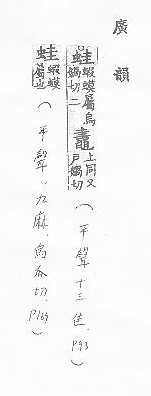 廣韻
蛙蝦蟇屬烏蝸切二 鼃上同又戶蝸切 (平聲十三佳、P93)
蛙蝦蟇屬也 (平聲、九麻、烏瓜切、P169)